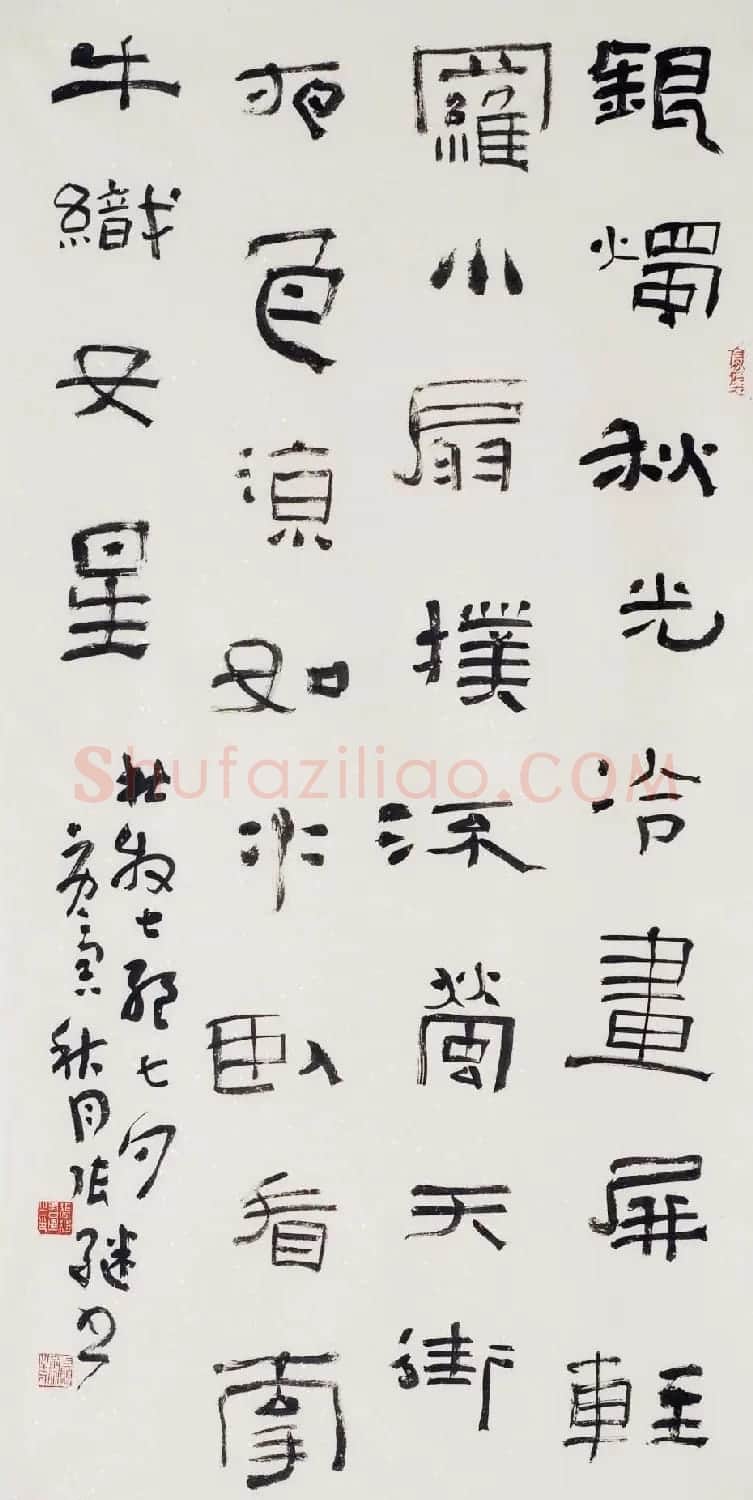 銀燭秋光冷畫屏輕
羅小扇撲流螢天街
夜色涼如水臥看牽
牛織女星
杜牧七絕七夕
庚寅秋月張继书
Shufaziliao.COM